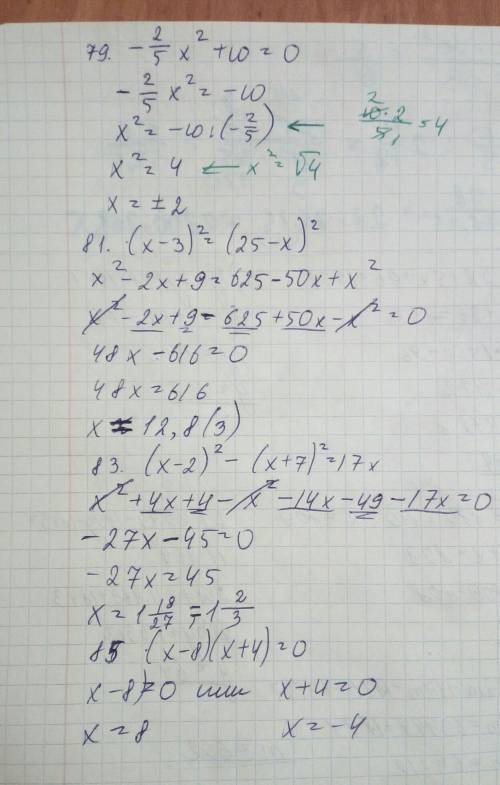 79. -2/5 x² + 10 = 0
-2/5 x² = -10
x² = -10 : (-2/5) ← 10·2/5 = 4
2 1
x² = 4 ← x² = √4
x = ±2
81. (x-3)² = (25-x)²
x² - 2x + 9 = 625 - 50x + x²
x² - 2x + 9 - 625 + 50x - x² = 0
48x - 616 = 0
48x = 616
x = 12,8(3)
83. (x-2)² - (x+7)² = 17x
x² + 4x + 4 - x² - 14x - 49 - 17x = 0
-27x - 45 = 0
-27x = 45
x = 1 18/27 = 1 2/3
85 (x-8)(x+4) = 0
x - 8 = 0 или x + 4 = 0
x = 8 x = -4